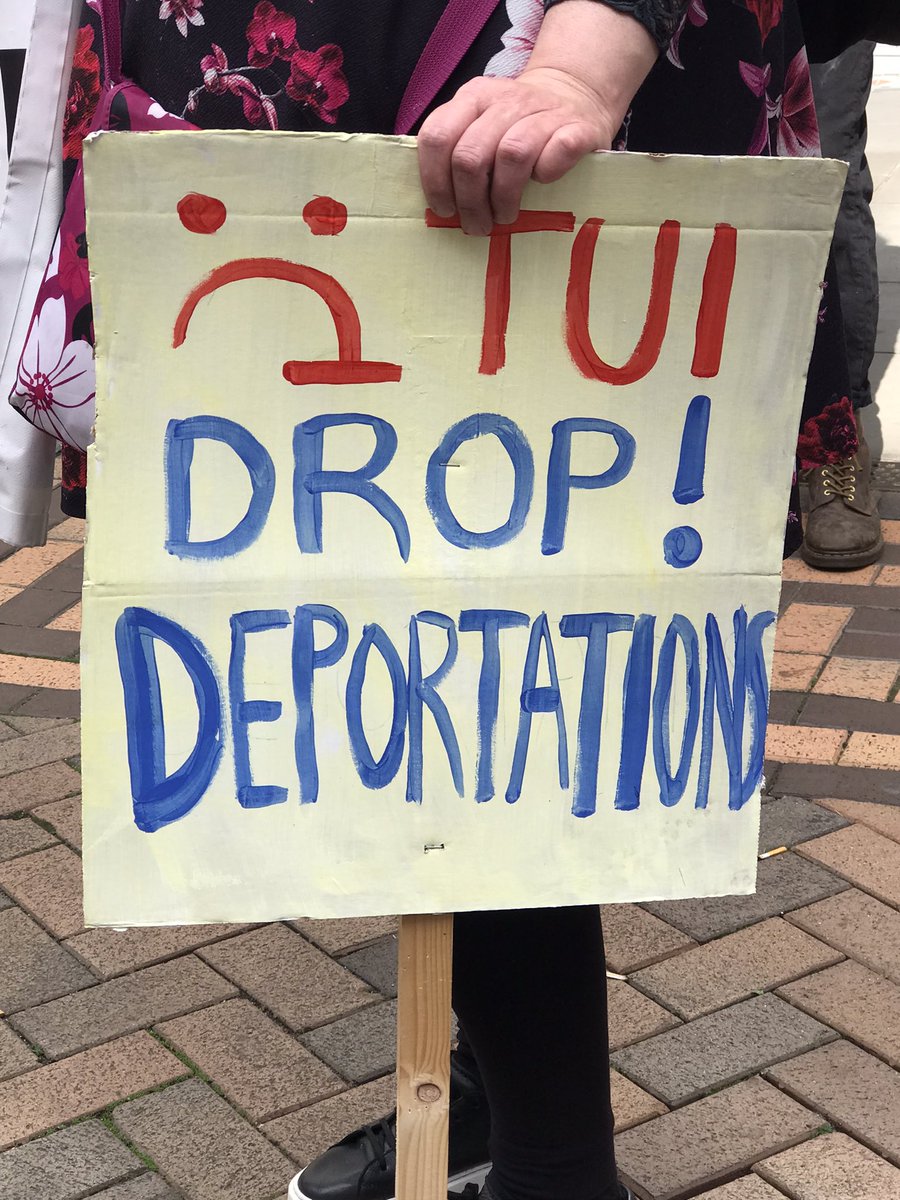 TUI
DROP!
DEPORTATIONS